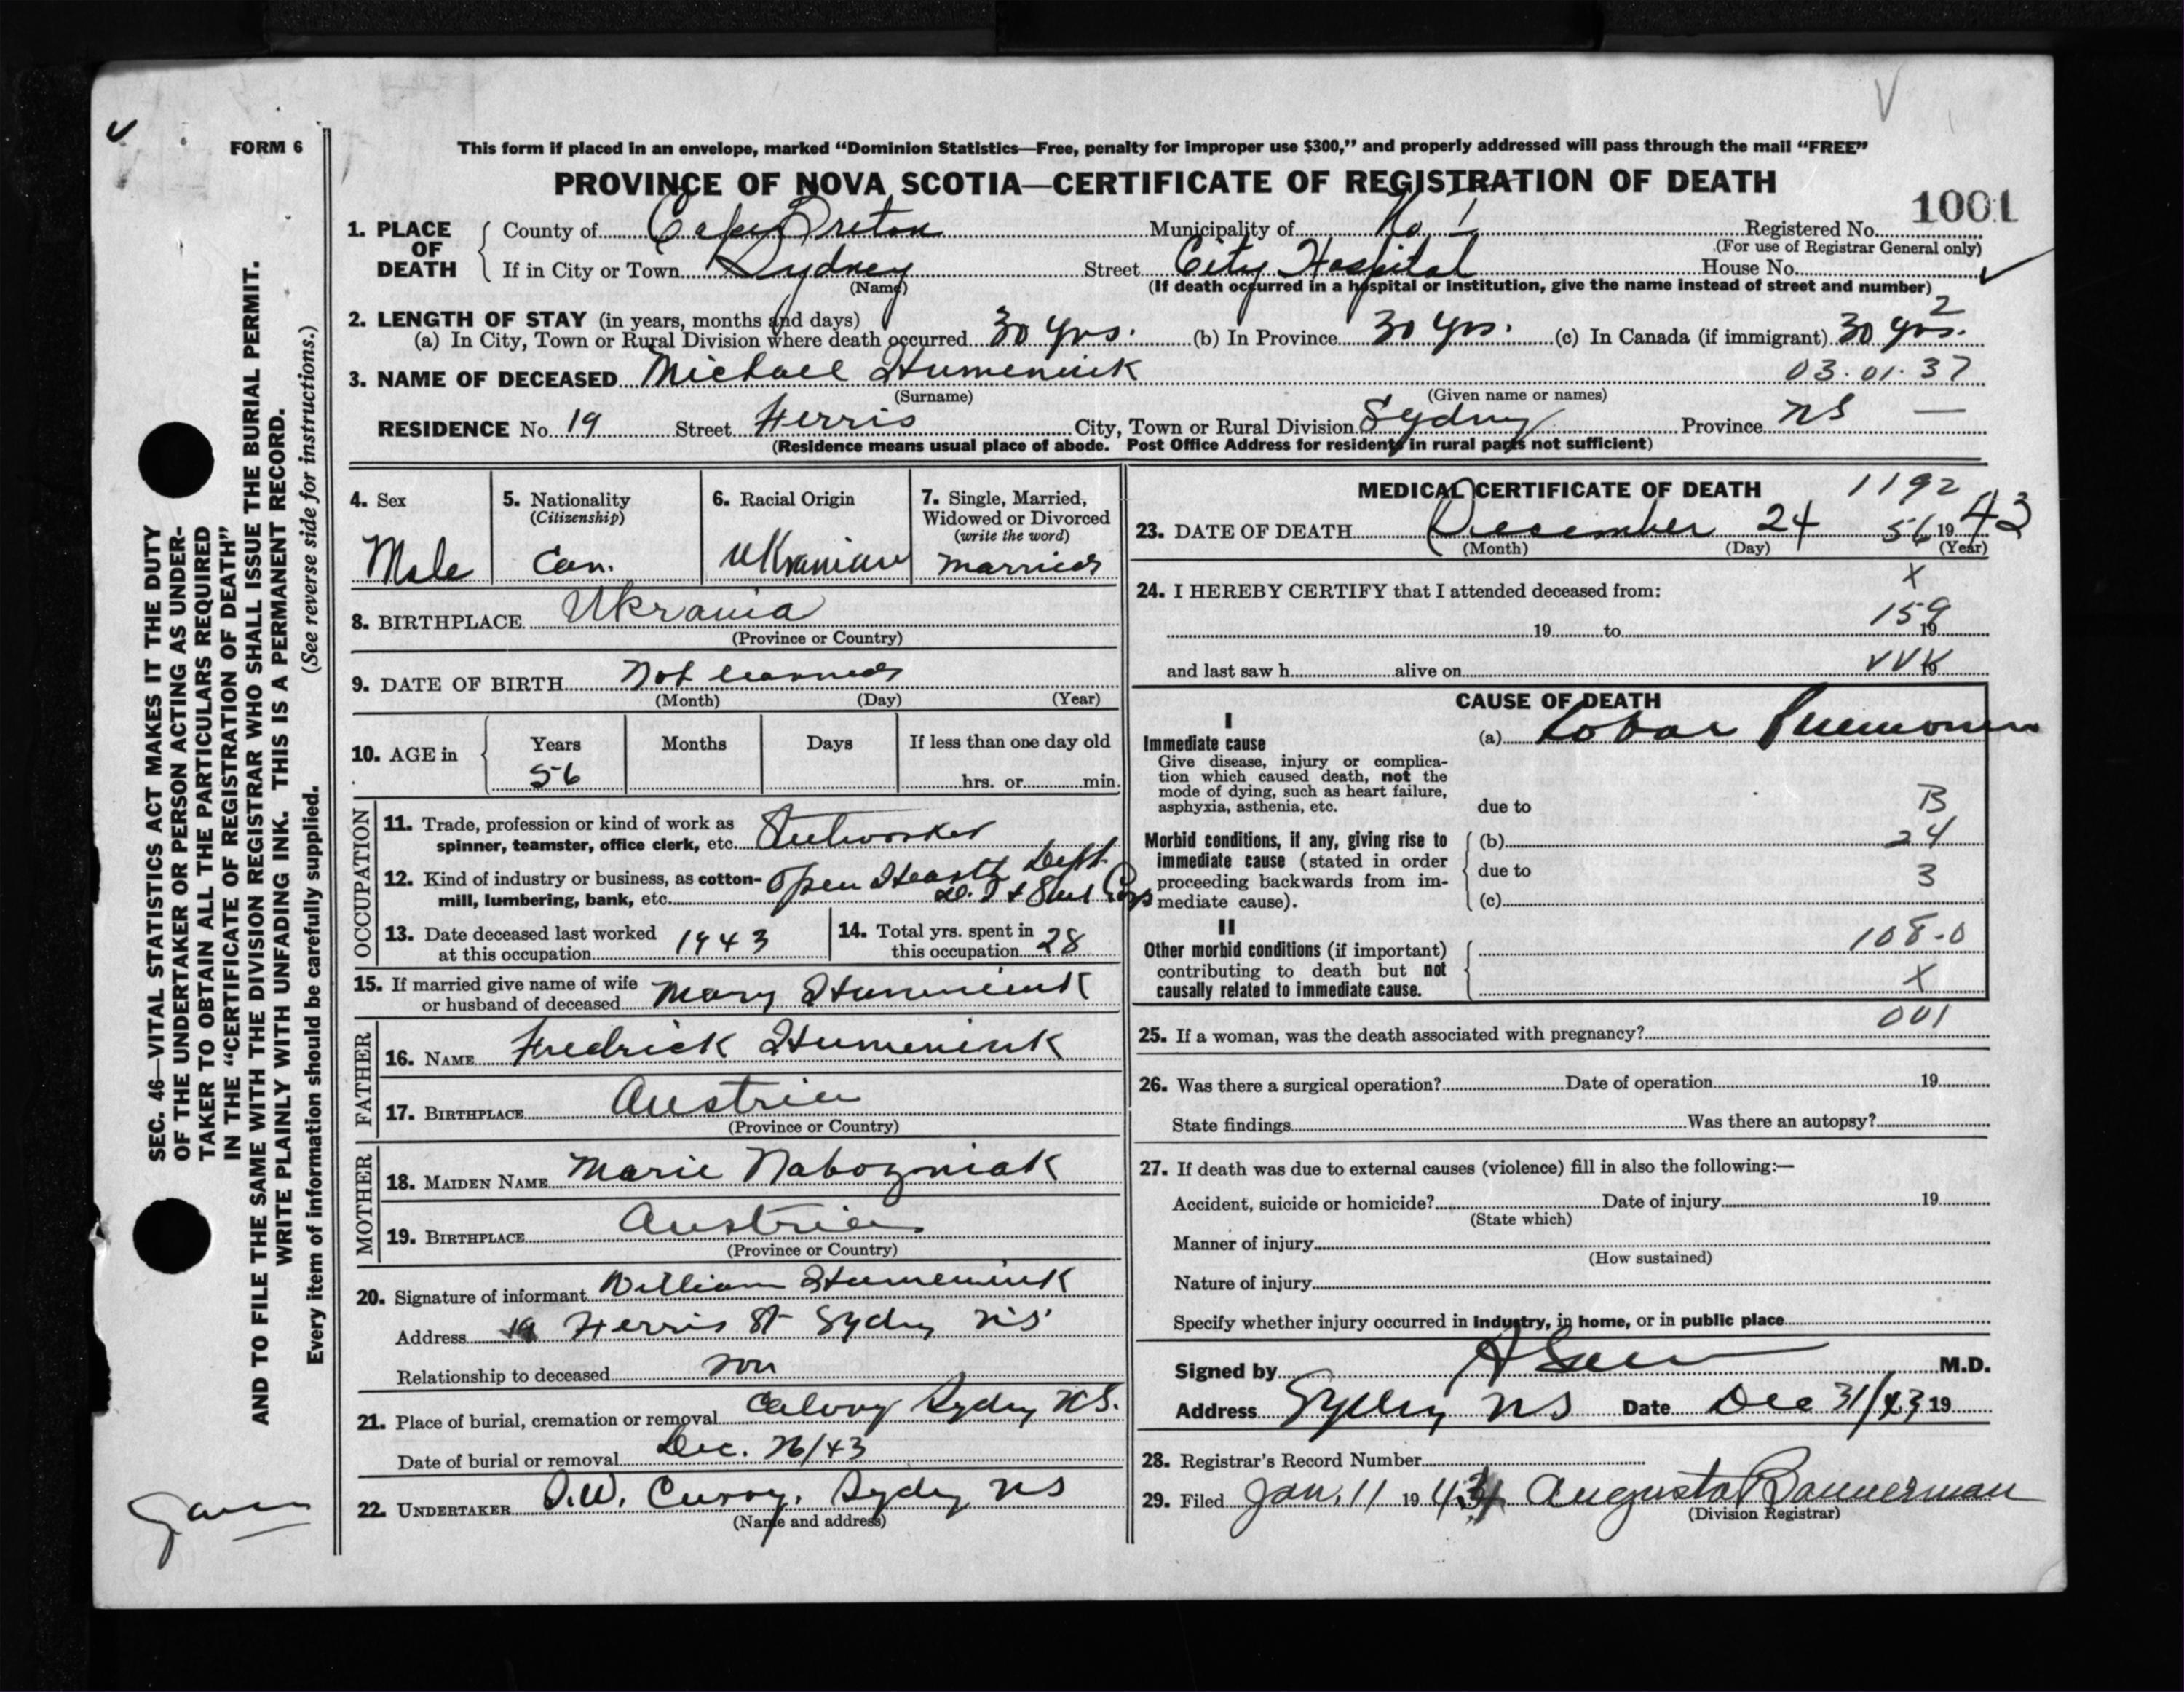 V
FORM 6
This form if placed in an envelope, marked “Dominion Statistics—Free, penalty for improper use $300,” and properly addressed will pass through the mail “FREE”
PROVINCE OF NOVA SCOTIA—CERTIFICATE OF REGISTRATION OF DEATH
1001
1. PLACE OF DEATH { County of Cape Breton Municipality of No 1 Registered No.
(For use of Registrar General only)
If in City or Town Sydney Street City Hospital House No.
(Name) (If death occurred in a hospital or institution, give the name instead of street and number)
2
2. LENGTH OF STAY (in years, months and days)
(a) In City, Town or Rural Division where death occurred 30 yrs. (b) In Province 30 yrs. (c) In Canada (if immigrant) 30 yrs.
3. NAME OF DECEASED Michael Humeniuk 03.01.37
(Surname) (Given name or names)
RESIDENCE No. 19 Street Ferris City, Town or Rural Division Sydney Province NS —
(Residence means usual place of abode. Post Office Address for residents in rural parts not sufficient)
4. Sex
Male
5. Nationality
(Citizenship)
Can.
6. Racial Origin
Ukranian
7. Single, Married,
Widowed or Divorced
(write the word)
married
8. BIRTHPLACE Ukrania
(Province or Country)
9. DATE OF BIRTH Not learned
(Month) (Day) (Year)
10. AGE in { Years Months Days If less than one day old
56 hrs. or min.
OCCUPATION
11. Trade, profession or kind of work as
spinner, teamster, office clerk, etc. Steelworker
12. Kind of industry or business, as cotton-
mill, lumbering, bank, etc. Open Hearth Dept
D. I & Steel Corp
13. Date deceased last worked
at this occupation 1943
14. Total yrs. spent in
this occupation 28
15. If married give name of wife
or husband of deceased Mary Humeniuk
FATHER
16. NAME Fredrick Humeniuk
17. BIRTHPLACE Austria
(Province or Country)
MOTHER
18. MAIDEN NAME Marie Nabozniak
19. BIRTHPLACE Austria
(Province or Country)
20. Signature of informant William Humeniuk
Address 19 Ferris St Sydney NS
Relationship to deceased son
21. Place of burial, cremation or removal Calvary Sydney N.S.
Date of burial or removal Dec. 26/43
22. UNDERTAKER Curry, Sydney NS
(Name and address)
MEDICAL CERTIFICATE OF DEATH 1192
23. DATE OF DEATH December 24 56 19 43
(Month) (Day) (Year)
X
24. I HEREBY CERTIFY that I attended deceased from:
159
19 to 19
and last saw h alive on VVK 19
CAUSE OF DEATH
I
Immediate cause
Give disease, injury or complica-
tion which caused death, not the
mode of dying, such as heart failure,
asphyxia, asthenia, etc.
(a) Lobar Pneumonia
due to B
Morbid conditions, if any, giving rise to
immediate cause (stated in order
proceeding backwards from im-
mediate cause).
(b) 24
due to 3
(c)
II
Other morbid conditions (if important)
contributing to death but not
causally related to immediate cause.
108-0
X
001
25. If a woman, was the death associated with pregnancy?
26. Was there a surgical operation? Date of operation 19
State findings Was there an autopsy?
27. If death was due to external causes (violence) fill in also the following:—
Accident, suicide or homicide? Date of injury 19
(State which)
Manner of injury
(How sustained)
Nature of injury
Specify whether injury occurred in industry, in home, or in public place
Signed by M.D.
Address Sydney NS Date Dec 31/43 19
28. Registrar's Record Number
29. Filed Jan. 11 19 Augusta Bannerman
(Division Registrar)
SEC. 46—VITAL STATISTICS ACT MAKES IT THE DUTY
OF THE UNDERTAKER OR PERSON ACTING AS UNDER-
TAKER TO OBTAIN ALL THE PARTICULARS REQUIRED
IN THE “CERTIFICATE OF REGISTRATION OF DEATH”
AND TO FILE THE SAME WITH THE DIVISION REGISTRAR WHO SHALL ISSUE THE BURIAL PERMIT.
WRITE PLAINLY WITH UNFADING INK. THIS IS A PERMANENT RECORD.
Every item of information should be carefully supplied. (See reverse side for instructions.)